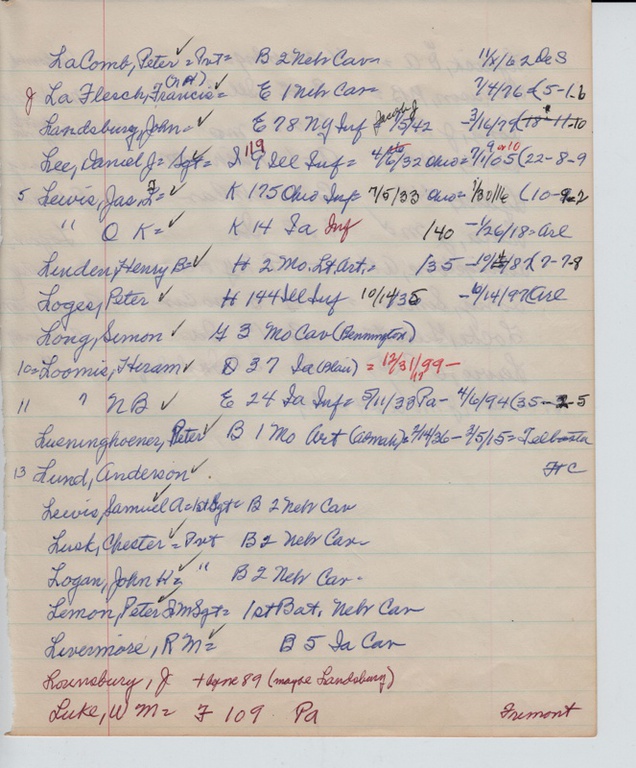 LaComb, Peter ✓ = Pvt = B 2 Nebr Cav = 11/8/62 Des
J La Flesch, Francis = ✓ E 1 Nebr Cav = 7/4/76 (5-1-6
Landsburg, John = ✓ E 78 NY Inf Jacob J 7/5/42 - 3/16/79 (18-11-10
Lee, Daniel J = Sgt = ✓ I 119 Ill Inf = 4/6/32 Ohio = 7/1/05 (22-8-9
5 Lewis, Jas. F = ✓ K 175 Ohio Inf = 7/5/33 Ohio = 1/30/16 (10-9-2
" O K = ✓ K 14 Ia Inf 140 - 1/26/18 =
Linden, Henry B = ✓ H 2 Mo. Lt. Art. = 135 - (7-7-8
Loges, Peter ✓ H 144 Ill Inf 10/14/35 - 6/14/97
Long, Simon ✓ G 3 Mo Cav (Bennington)
10 = Loomis, Hiram ✓ D 37 Ia (Blair) = 12/31/99 -
11 " N B ✓ E 24 Ia Inf = 5/11/33 Pa - 4/6/94 (35-2-5
Lueninghoener, Peter ✓ B 1 Mo Art = 2/14/36 - 3/5/15 =
13 Lund, Anderson ✓ . H C
Lewis, Samuel A = 1st Sgt = B 2 Nebr Cav
Lusk, Chester ✓ = Pvt B 2 Nebr Cav -
Logan, John H = ✓ " B 2 Nebr Cav -
Lemon, Peter ✓ Sgt = 1st Bat, Nebr Cav
Livermore, R M = ✓ B 5 Ia Cav
Lounsbury, J 89 (maybe Landsburg)
Luke, W M = F 109 Pa Fremont